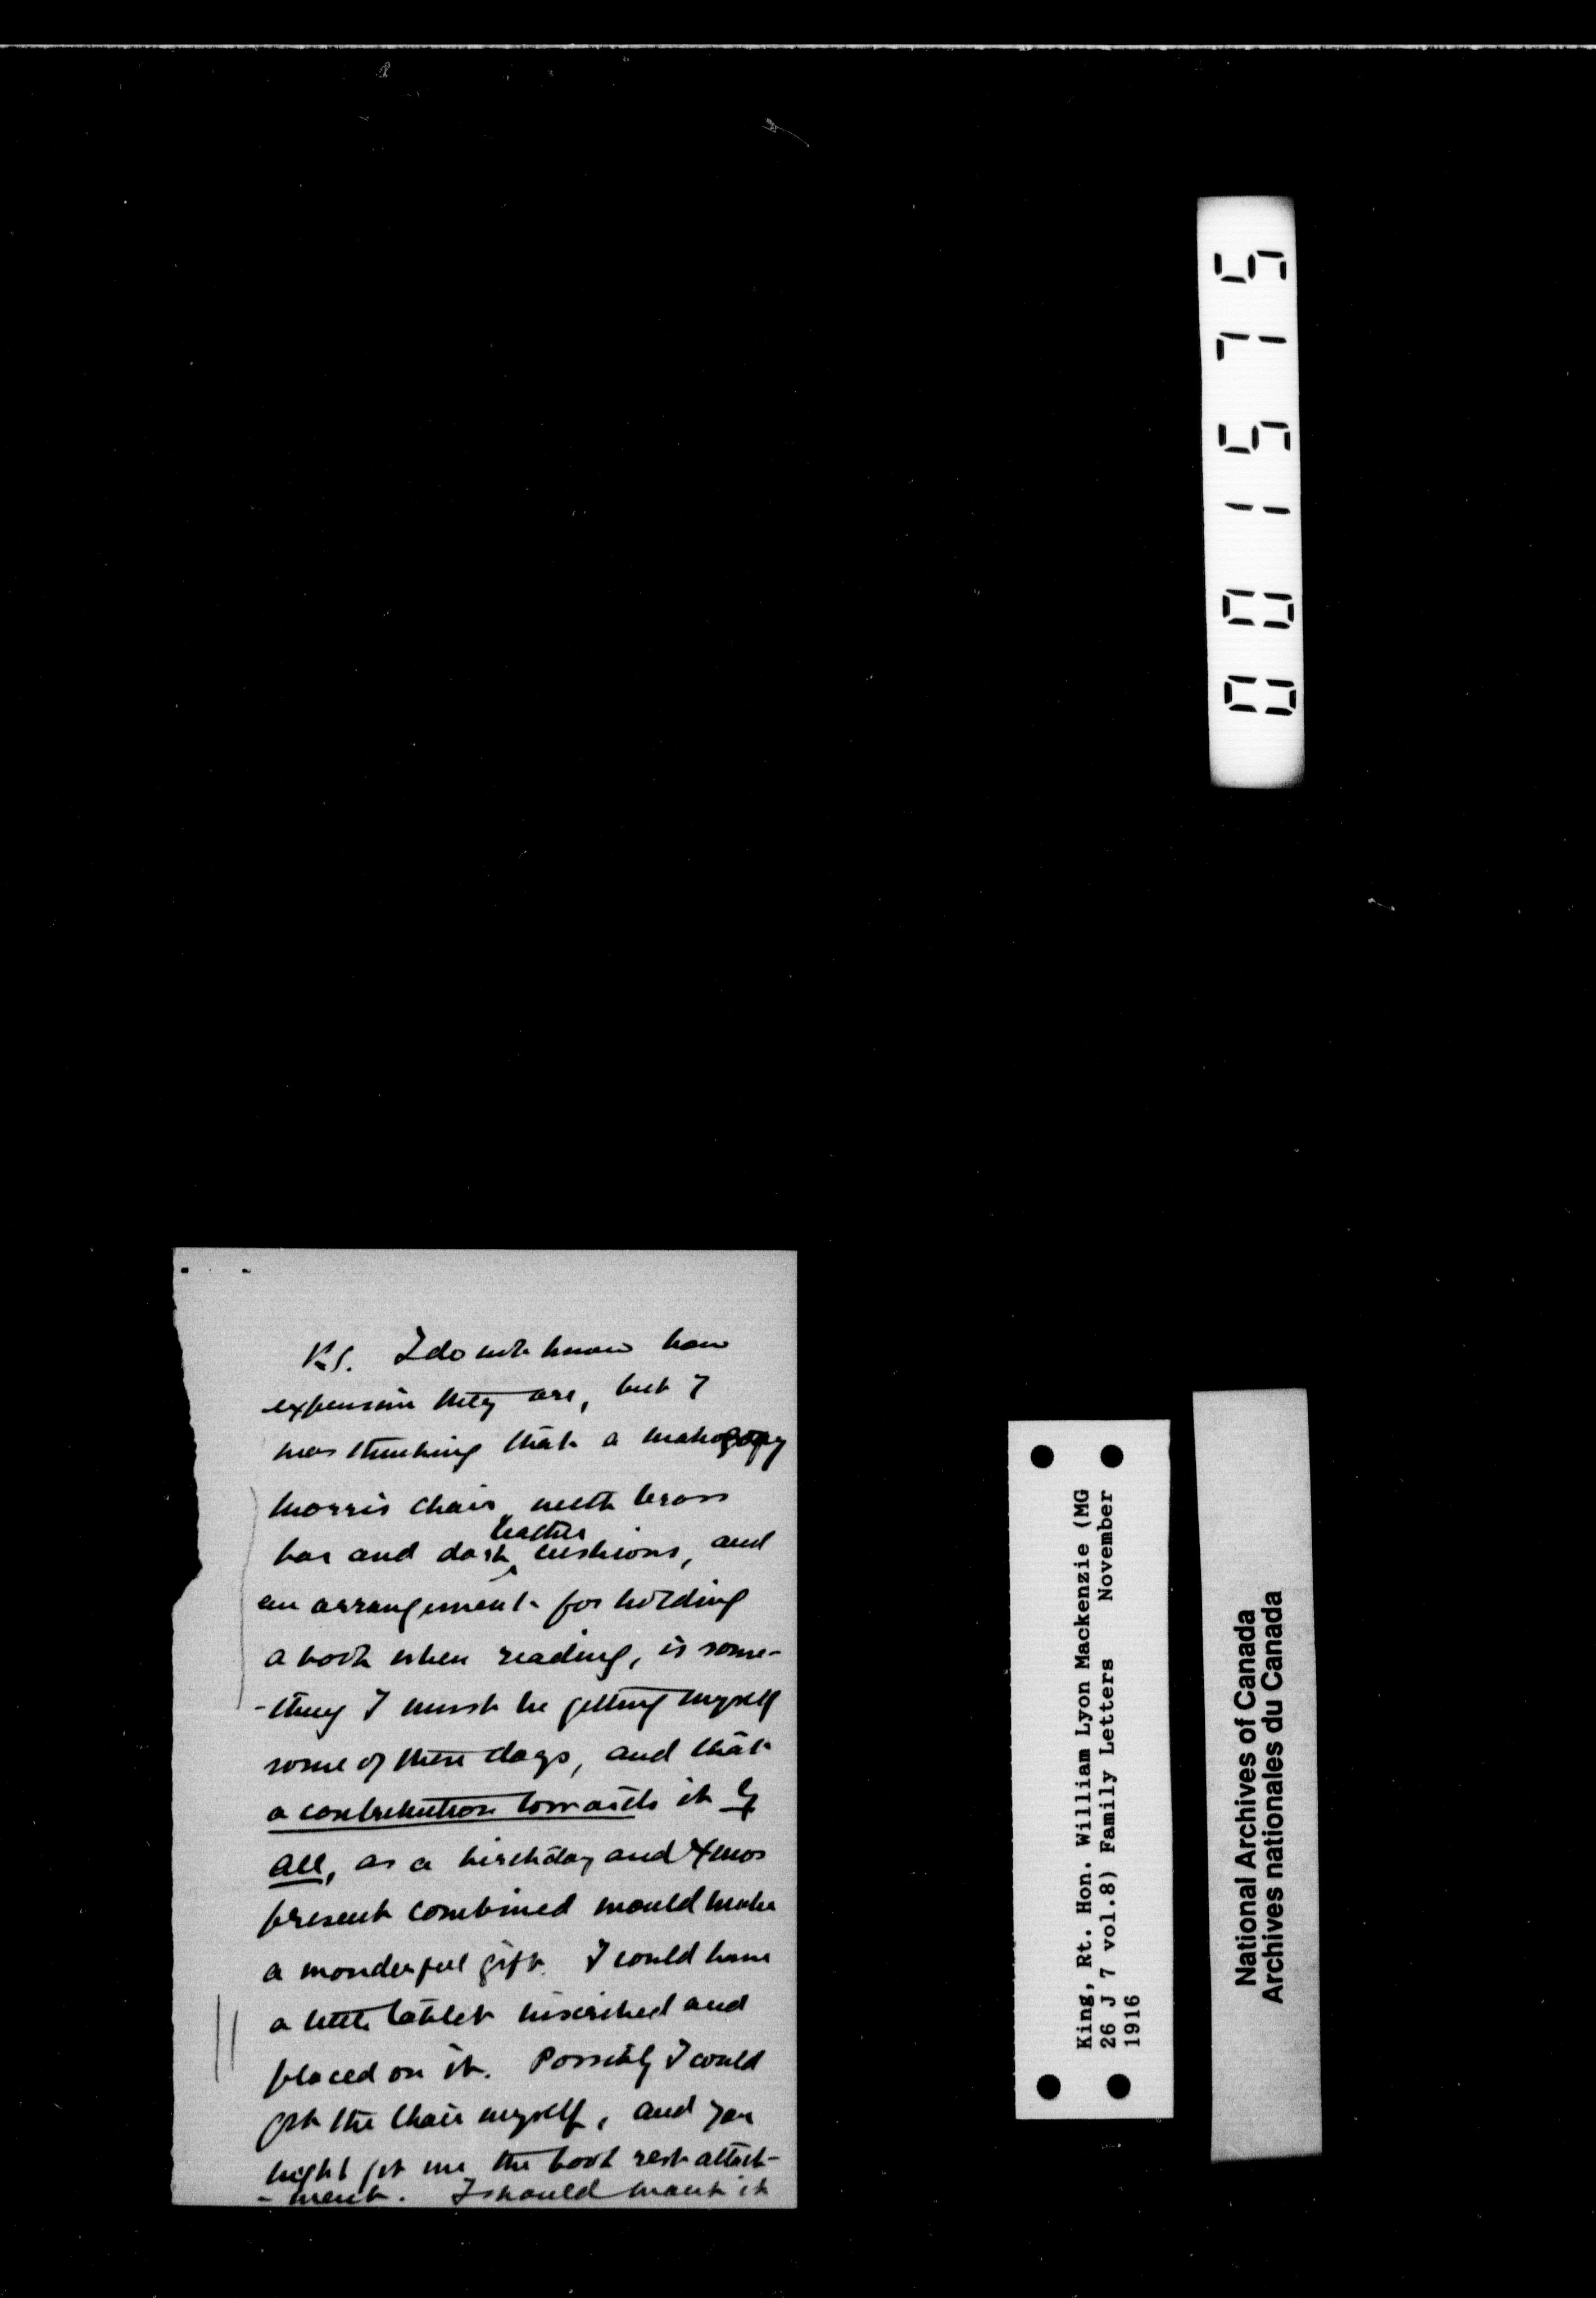 P.S. I do not know how
expensive they are, but I
was thinking that a mahogany
morris chair, with brass
bar and dark leather cushions, and
an arrangement for holding
a book when reading, is some-
-thing I must be getting myself
some of these days, and that
a contribution towards it by
all, as a birthday and Xmas
present combined would make
a wonderful gift. I could have
a little tablet inscribed and
placed on it. Possibly I could
get the chair myself, and you
might get me the book rest attach-
-ment. I should want it
001575
King, Rt. Hon. William Lyon Mackenzie (MG
26 J 7 vol.8) Family Letters November
1916
National Archives of Canada
Archives nationales du Canada